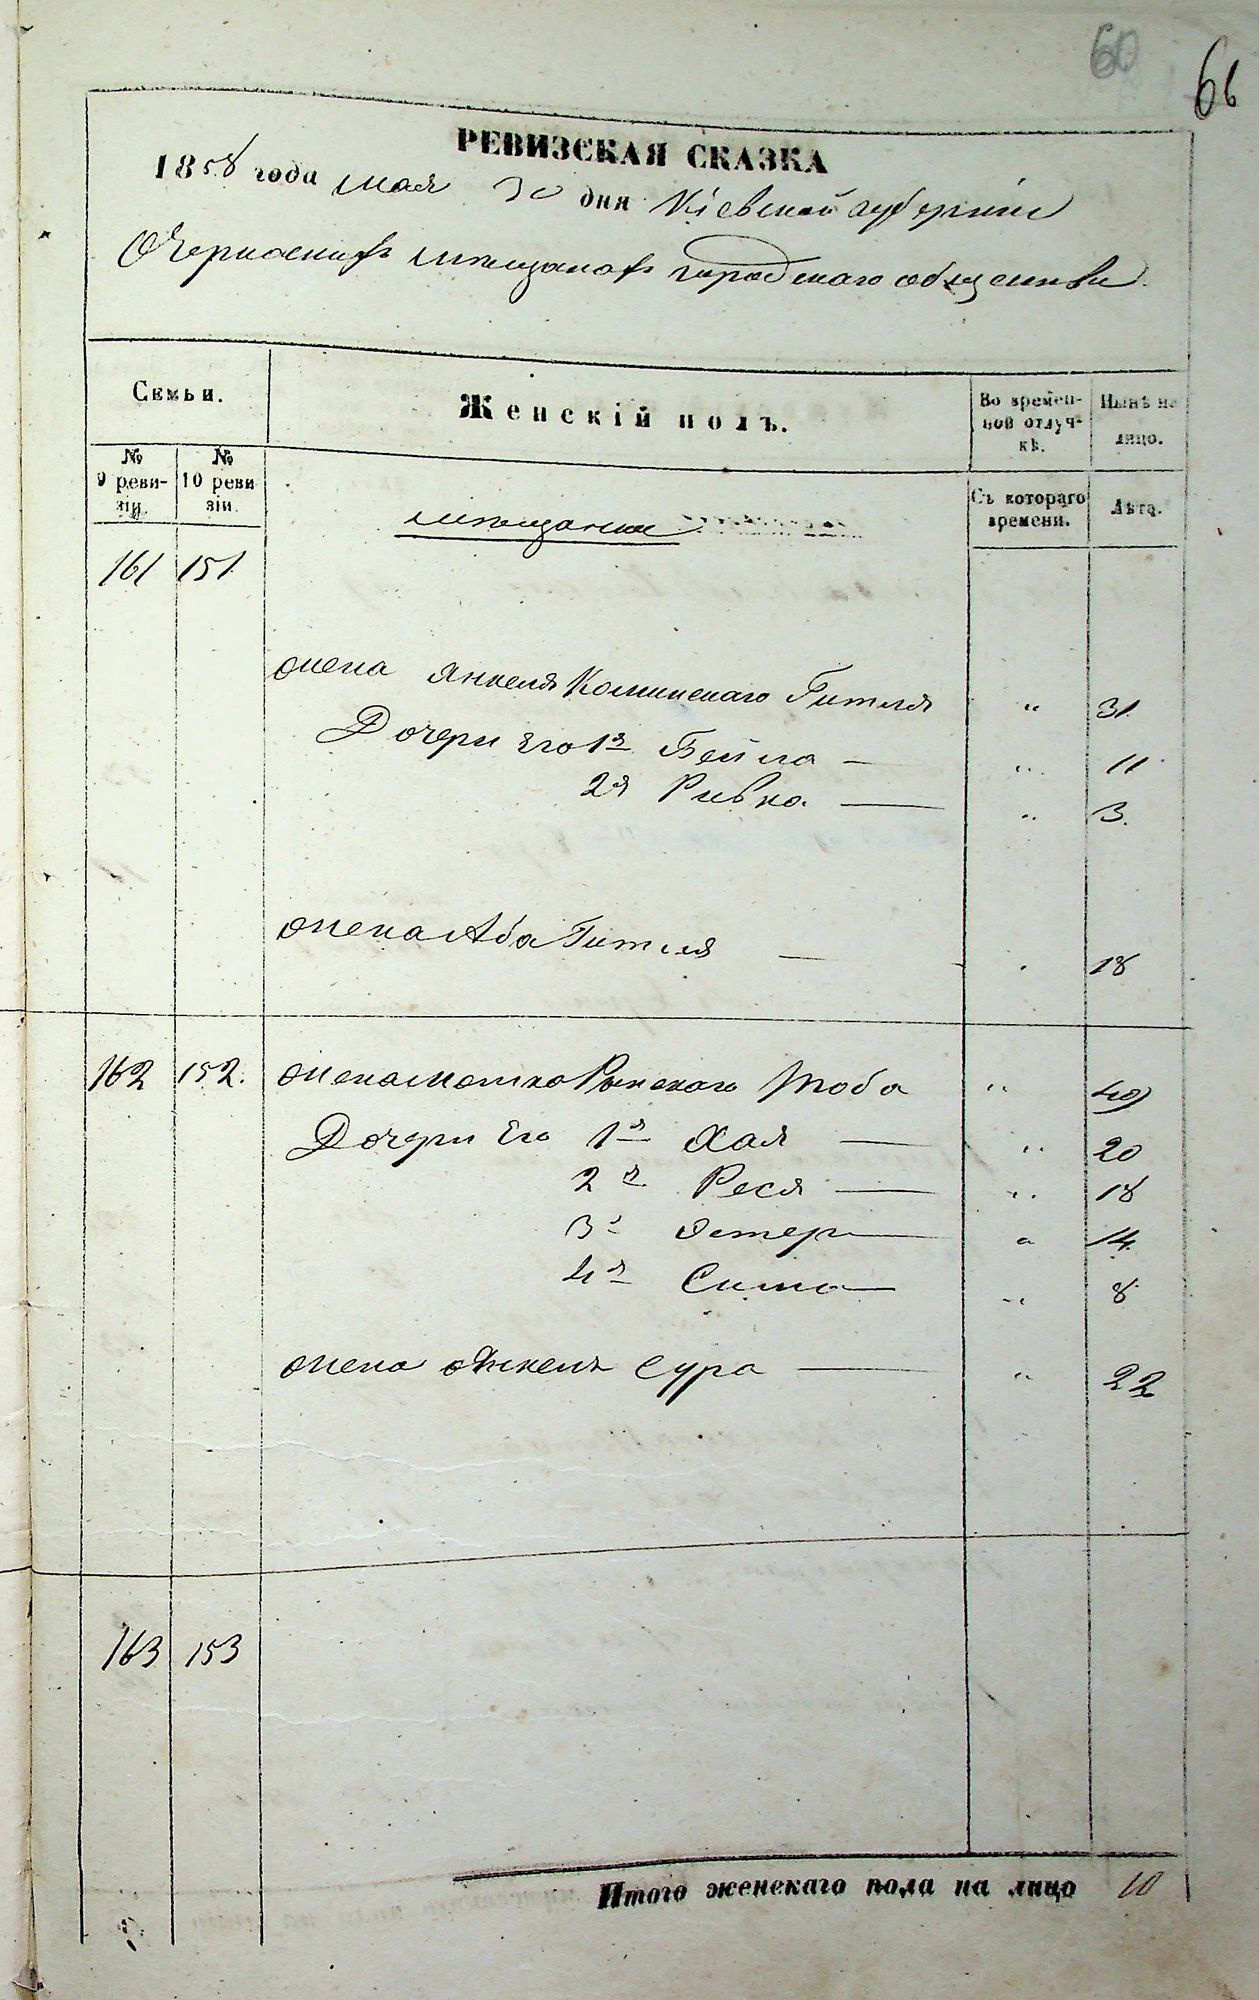 60
66
РЕВИЗСКАЯ СКАЗКА
1858 года мая 30 дня Кіевской губерніи
О Черкаскихъ мѣщанахъ городскаго общества
Семьи.
Женскій полъ.
Во времен-
ной отлуч-
кѣ.
Нынѣ на
лицо.
№
9 реви-
зіи.
№
10 реви
зіи.
Съ котораго
времени.
Лѣта.
мѣщанки
161 151
жена Янкеля Гителя „ 31.
Дочери Его 1я Бейла — „ 11
2я Ривка. — „ 3.
жена Аба Гителя — 18
162 152. жена Мошка Рынскаго Тоба „ 40
Дочери Его 1я Хая — „ 20
2я Рися — „ 18
3я Эстер — „ 14
4я Сима — „ 8
жена Сура — „ 22
163 153
Итого женскаго пола на лицо 10